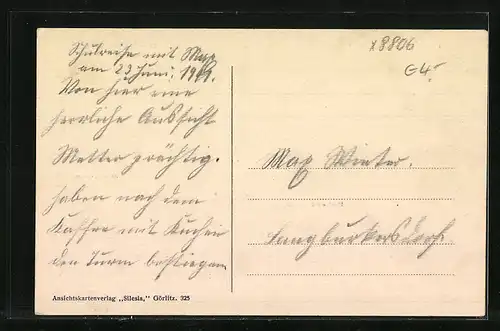 x8806
G4.-
Schulreise mit Max
am 23 Juni. 19
Von hier eine
herrliche Aussicht
Wetter prächtig.
haben nach dem
Kaffee mit Kuchen
den Turm bestiegen
Max Winter.
Langburkersdorf.
Ansichtskartenverlag „Silesia," Görlitz. 325